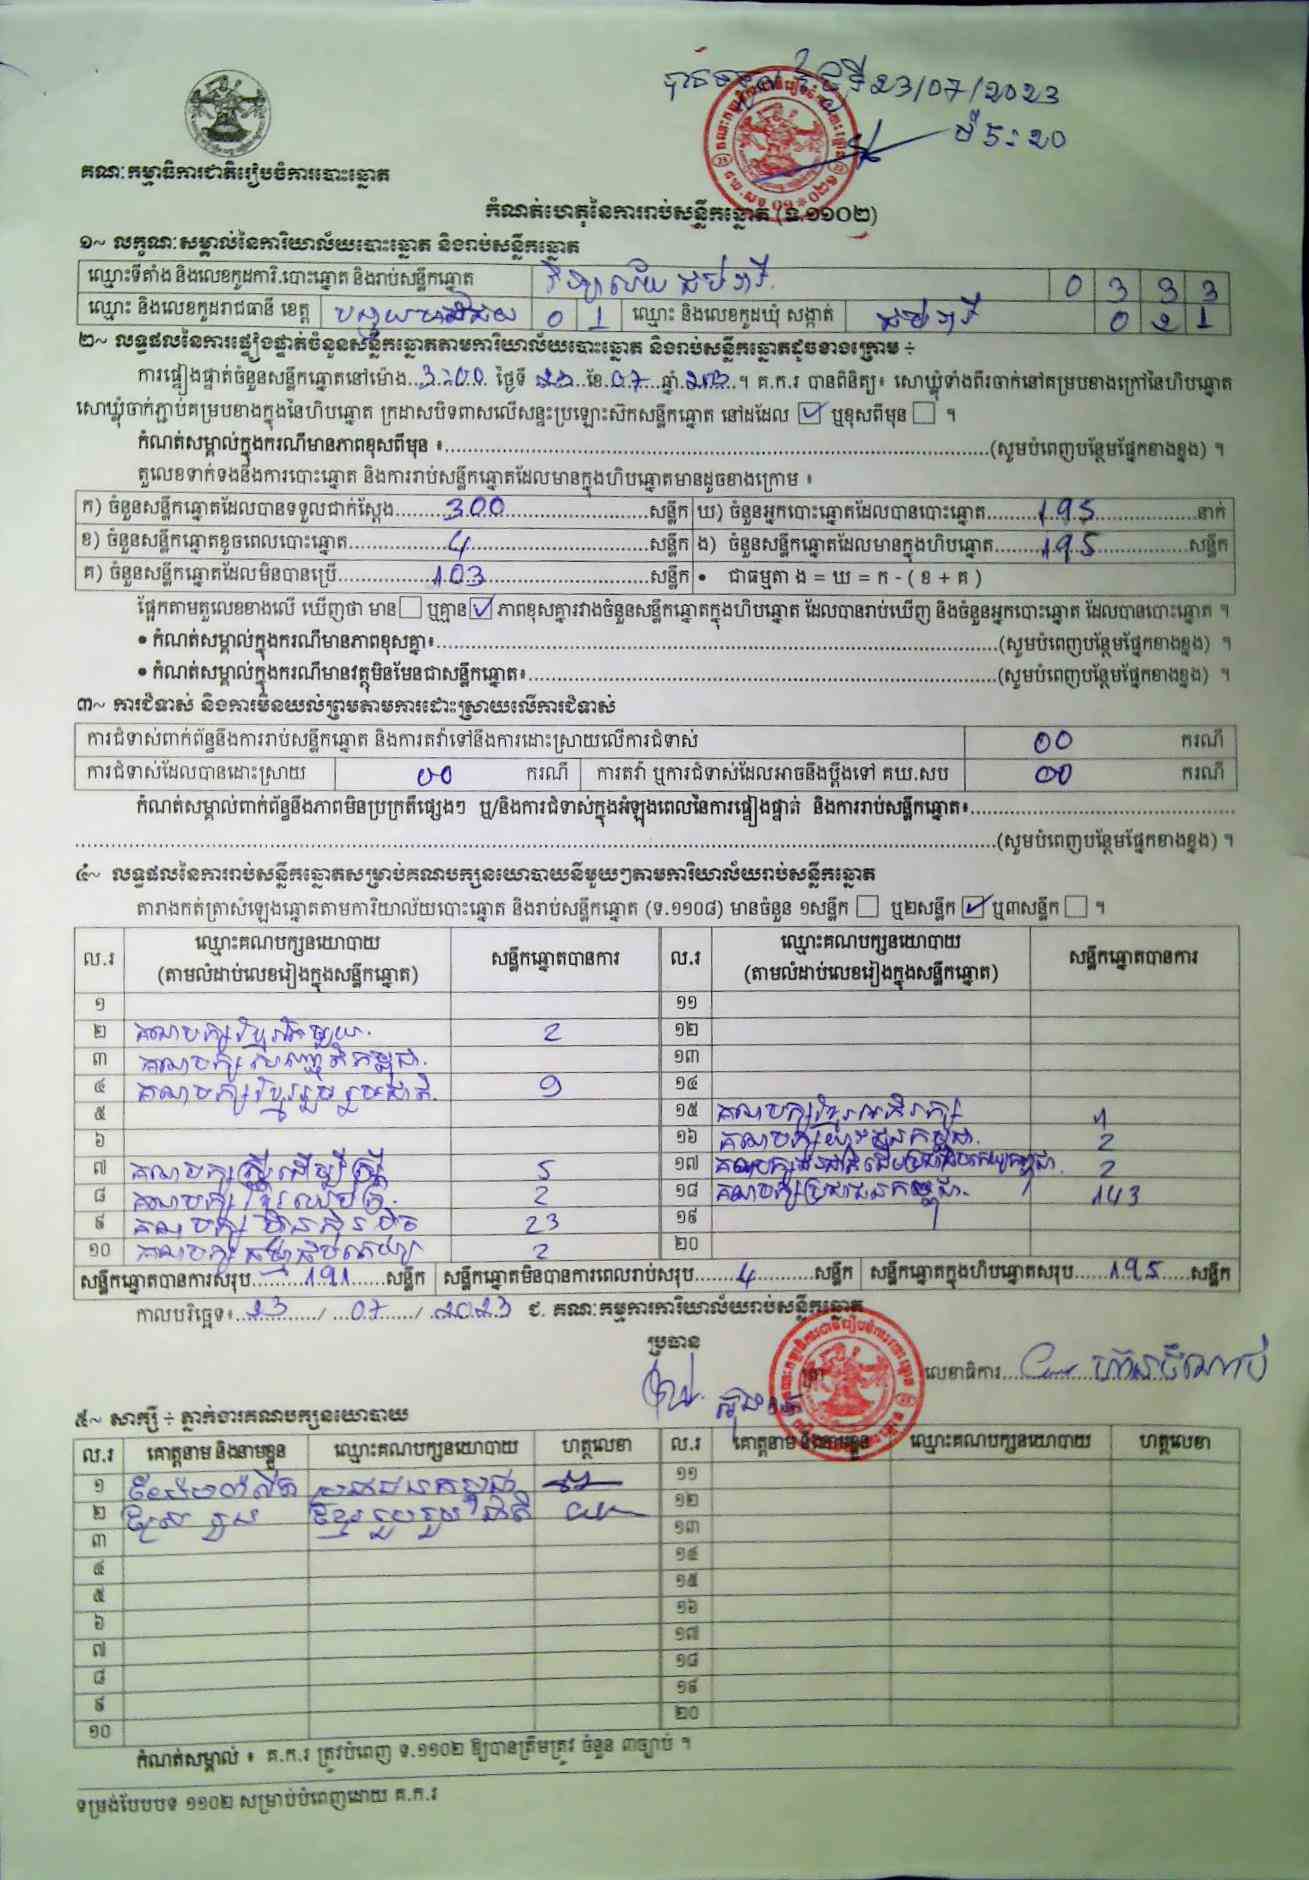 បានទទួល ថ្ងៃទី 23/07/2023
ម៉ 5:20
គណៈកម្មាធិការជាតិរៀបចំការបោះឆ្នោត
កំណត់ហេតុនៃការរាប់សន្លឹកឆ្នោត (ទ.១១០២)
១~ លក្ខណៈសម្គាល់នៃការិយាល័យបោះឆ្នោត និងរាប់សន្លឹកឆ្នោត
ឈ្មោះទីតាំង និងលេខកូដការិ.បោះឆ្នោត និងរាប់សន្លឹកឆ្នោត វិទ្យាល័យ ជប់វារី 0 3 3 3
ឈ្មោះ និងលេខកូដរាជធានី ខេត្ត បន្ទាយមានជ័យ 0 1 ឈ្មោះ និងលេខកូដឃុំ សង្កាត់ ជប់វារី 0 2 1
២~ លទ្ធផលនៃការផ្ទៀងផ្ទាត់ចំនួនសន្លឹកឆ្នោតតាមការិយាល័យបោះឆ្នោត និងរាប់សន្លឹកឆ្នោតដូចខាងក្រោម ÷
ការផ្ទៀងផ្ទាត់ចំនួនសន្លឹកឆ្នោតនៅម៉ោង..3:00.. ថ្ងៃទី 23 ខែ.07 ឆ្នាំ.2023។ គ.ក.រ បានពិនិត្យ៖ សោឃ្លុំទាំងពីរចាក់នៅគម្របខាងក្រៅនៃហិបឆ្នោត
សោឃ្លុំចាក់ភ្ជាប់គម្របខាងក្នុងនៃហិបឆ្នោត ក្រដាសបិទពាសលើសន្ទះប្រឡោះស៊កសន្លឹកឆ្នោត នៅដដែល ☑ ឬខុសពីមុន ☐ ។
កំណត់សម្គាល់ក្នុងករណីមានភាពខុសពីមុន ៖..........(សូមបំពេញបន្ថែមផ្នែកខាងខ្នង) ។
តួលេខទាក់ទងនឹងការបោះឆ្នោត និងការរាប់សន្លឹកឆ្នោតដែលមានក្នុងហិបឆ្នោតមានដូចខាងក្រោម ៖
ក) ចំនួនសន្លឹកឆ្នោតដែលបានទទួលជាក់ស្តែង.....300.....សន្លឹក ឃ) ចំនួនអ្នកបោះឆ្នោតដែលបានបោះឆ្នោត.....195.....នាក់
ខ) ចំនួនសន្លឹកឆ្នោតខូចពេលបោះឆ្នោត.....4.....សន្លឹក ង) ចំនួនសន្លឹកឆ្នោតដែលមានក្នុងហិបឆ្នោត.....195.....សន្លឹក
គ) ចំនួនសន្លឹកឆ្នោតដែលមិនបានប្រើ.....103.....សន្លឹក • ជាធម្មតា ង = ឃ = ក - ( ខ + គ )
ផ្អែកតាមតួលេខខាងលើ ឃើញថា មាន ☐ ឬគ្មាន ☑ ភាពខុសគ្នារវាងចំនួនសន្លឹកឆ្នោតក្នុងហិបឆ្នោត ដែលបានរាប់ឃើញ និងចំនួនអ្នកបោះឆ្នោត ដែលបានបោះឆ្នោត ។
• កំណត់សម្គាល់ក្នុងករណីមានភាពខុសគ្នា៖..........(សូមបំពេញបន្ថែមផ្នែកខាងខ្នង) ។
• កំណត់សម្គាល់ក្នុងករណីមានវត្ថុមិនមែនជាសន្លឹកឆ្នោត៖..........(សូមបំពេញបន្ថែមផ្នែកខាងខ្នង) ។
៣~ ការជំទាស់ និងការមិនយល់ព្រមតាមការដោះស្រាយលើការជំទាស់
ការជំទាស់ពាក់ព័ន្ធនឹងការរាប់សន្លឹកឆ្នោត និងការតវ៉ាទៅនឹងការដោះស្រាយលើការជំទាស់ 00 ករណី
ការជំទាស់ដែលបានដោះស្រាយ 00 ករណី ការតវ៉ា ឬការជំទាស់ដែលអាចនឹងប្តឹងទៅ គឃ.សប 00 ករណី
កំណត់សម្គាល់ពាក់ព័ន្ធនឹងភាពមិនប្រក្រតីផ្សេងៗ ឬ/និងការជំទាស់ក្នុងអំឡុងពេលនៃការផ្ទៀងផ្ទាត់ និងការរាប់សន្លឹកឆ្នោត៖..........
..........(សូមបំពេញបន្ថែមផ្នែកខាងខ្នង) ។
៤~ លទ្ធផលនៃការរាប់សន្លឹកឆ្នោតសម្រាប់គណបក្សនយោបាយនីមួយៗតាមការិយាល័យរាប់សន្លឹកឆ្នោត
តារាងកត់ត្រាសំឡេងឆ្នោតតាមការិយាល័យបោះឆ្នោត និងរាប់សន្លឹកឆ្នោត (ទ.១១០៨) មានចំនួន ១សន្លឹក ☐ ឬ២សន្លឹក ☑ ឬ៣សន្លឹក ☐ ។
ល.រ ឈ្មោះគណបក្សនយោបាយ (តាមលំដាប់លេខរៀងក្នុងសន្លឹកឆ្នោត) សន្លឹកឆ្នោតបានការ ល.រ ឈ្មោះគណបក្សនយោបាយ (តាមលំដាប់លេខរៀងក្នុងសន្លឹកឆ្នោត) សន្លឹកឆ្នោតបានការ
១ ១១
២ គណបក្ស ខ្មែរតែមួយ 2 ១២
៣ គណបក្ស សញ្ជាតិកម្ពុជា ១៣
៤ គណបក្ស ខ្មែររួបរួមជាតិ 9 ១៤
៥ ១៥ គណបក្សខ្មែរអភិរក្ស 1
៦ ១៦ គណបក្សយុវជនកម្ពុជា 2
៧ គណបក្សស្ត្រីដើម្បីស្ត្រី 5 ១៧ 2
៨ គណបក្ស 2 ១៨ គណបក្សប្រជាជនកម្ពុជា 143
៩ គណបក្ស ហ្វ៊ុនស៊ិនប៉ិច 23 ១៩
១០ គណបក្ស ធម្មាធិបតេយ្យ 2 ២០
សន្លឹកឆ្នោតបានការសរុប.....191.....សន្លឹក សន្លឹកឆ្នោតមិនបានការពេលរាប់សរុប.....4.....សន្លឹក សន្លឹកឆ្នោតក្នុងហិបឆ្នោតសរុប.....195.....សន្លឹក
កាលបរិច្ឆេទ៖ 23 / 07 / 2023 ជ. គណៈកម្មការការិយាល័យរាប់សន្លឹកឆ្នោត
ប្រធាន ត្រា លេខាធិការ
៥~ សាក្សី ÷ ភ្នាក់ងារគណបក្សនយោបាយ
ល.រ គោត្តនាម និងនាមខ្លួន ឈ្មោះគណបក្សនយោបាយ ហត្ថលេខា ល.រ គោត្តនាម និងនាមខ្លួន ឈ្មោះគណបក្សនយោបាយ ហត្ថលេខា
១ ប្រជាជនកម្ពុជា ១១
២ ខ្មែររួបរួមជាតិ ១២
៣ ១៣
៤ ១៤
៥ ១៥
៦ ១៦
៧ ១៧
៨ ១៨
៩ ១៩
១០ ២០
កំណត់សម្គាល់ ៖ គ.ក.រ ត្រូវបំពេញ ទ.១១០២ ឱ្យបានត្រឹមត្រូវ ចំនួន ៣ច្បាប់ ។
ទម្រង់បែបបទ ១១០២ សម្រាប់បំពេញដោយ គ.ក.រ